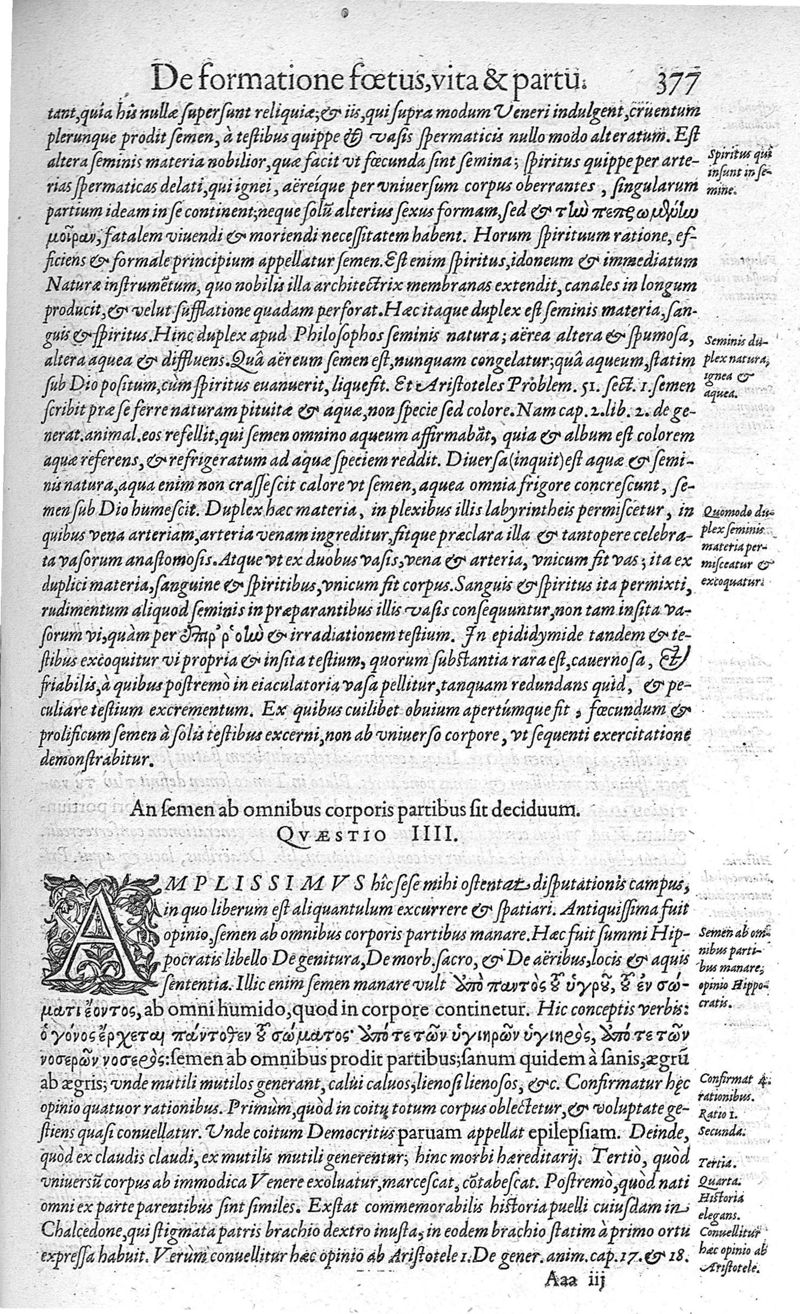 De formatione fœtus, vita & partu. 377
tant, quia his nullæ supersunt reliquiæ; & iis, qui supra modum Veneri indulgent, cruentum
plerunque prodit semen, à testibus quippe & vasis spermaticis nullo modo alteratum. Est
altera seminis materia nobilior, quæ facit vt fœcunda sint semina; spiritus quippe per arte-
rias spermaticas delati, qui ignei, aëreíque per vniuersum corpus oberrantes, singularum
partium ideam in se continent; neque solũ alterius sexus formam, sed & τὴν πεπρωμένην
μοῖραν, fatalem viuendi & moriendi necessitatem habent. Horum spirituum ratione, ef-
ficiens & formale principium appellatur semen. Est enim spiritus, idoneum & immediatum
Naturæ instrumẽtum, quo nobilis illa architectrix membranas extendit, canales in longum
producit, & velut sufflatione quadam perforat. Hæc itaque duplex est seminis materia, san-
guis & spiritus. Hinc duplex apud Philosophos seminis natura; aërea altera & spumosa,
altera aquea & diffluens. Quâ aëreum semen est, nunquam congelatur; quâ aqueum, statim
sub Dio positum, cum spiritus euanuerit, liquefit. Et Aristoteles Problem. 51. sect. 1. semen
scribit præ se ferre naturam pituitæ & aquæ, non specie sed colore. Nam cap. 2. lib. 2. de ge-
nerat. animal. eos refellit, qui semen omnino aqueum affirmabãt, quia & album est colorem
aquæ referens, & refrigeratum ad aquæ speciem reddit. Diuersa (inquit) est aquæ & semi-
nis natura, aqua enim non crassescit calore vt semen, aquea omnia frigore concrescunt, se-
men sub Dio humescit. Duplex hæc materia, in plexibus illis labyrintheis permiscetur, in
quibus vena arteriam, arteria venam ingreditur, fitque præclara illa & tantopere celebra-
ta vasorum anastomosis. Atque vt ex duobus vasis, vena & arteria, vnicum fit vas; ita ex
duplici materia, sanguine & spiritibus, vnicum fit corpus. Sanguis & spiritus ita permixti,
rudimentum aliquod seminis in præparantibus illis vasis consequuntur, non tam insita va-
sorum vi, quàm per & irradiationem testium. In epididymide tandem & te-
stibus excoquitur vi propria & insita testium, quorum substantia rara est, cauernosa, &
friabilis, à quibus postremò in eiaculatoria vasa pellitur, tanquam redundans quid, & pe-
culiare testium excrementum. Ex quibus cuilibet obuium apertúmque fit, fœcundum &
prolificum semen à solis testibus excerni, non ab vniuerso corpore, vt sequenti exercitatione
demonstrabitur.
Spiritus qui
insunt in se-
mine.
Seminis du-
plex natura,
ignea &
aquea.
Quomodo du-
plex seminis
materia per-
misceatur &
excoquatur.
An semen ab omnibus corporis partibus sit deciduum.
QVÆSTIO IIII.
AMPLISSIMVS hîc sese mihi ostentat disputationis campus,
in quo liberum est aliquantulum excurrere & spatiari. Antiquissima fuit
opinio, semen ab omnibus corporis partibus manare. Hæc fuit summi Hip-
pocratis libello De genitura, De morb. sacro, & De aëribus, locis & aquis
sententia. Illic enim semen manare vult ὑπὸ παντὸς τοῦ ὑγροῦ, τοῦ ἐν σώ-
ματι ἐόντος, ab omni humido, quod in corpore continetur. Hic conceptis verbis:
ὁ γόνος ἔρχεται πάντοθεν τοῦ σώματος· ὑπό τε τῶν ὑγιηρῶν ὑγιηρὸς, ὑπό τε τῶν
νοσερῶν νοσερὸς: semen ab omnibus prodit partibus; sanum quidem à sanis, ægrũ
ab ægris; vnde mutili mutilos generant, calui caluos; lienosi lienosos, &c. Confirmatur hęc
opinio quatuor rationibus. Primùm, quòd in coitu totum corpus oblectetur, & voluptate ge-
stiens quasi conuellatur. Vnde coitum Democritus paruam appellat epilepsiam. Deinde,
quòd ex claudis claudi, ex mutilis mutili generentur; hinc morbi hæreditarij. Tertiò, quòd
vniuersũ corpus ab immodica Venere exoluatur, marcescat, cõtabescat. Postremò, quòd nati
omni ex parte parentibus sint similes. Exstat commemorabilis historia puelli cuiusdam in
Chalcedone, qui stigmata patris brachio dextro inusta, in eodem brachio statim à primo ortu
expressa habuit. Verùm conuellitur hæc opinio ab Aristotele 1. De gener. anim. cap. 17. & 18.
Semen ab om-
nibus parti-
bus manare,
opinio Hippo-
cratis.
Confirmat 4.
rationibus.
Ratio 1.
Secunda.
Tertia.
Quarta.
Historia
elegans.
Conuellitur
hæc opinio ab
Aristotele.
Aaa iij